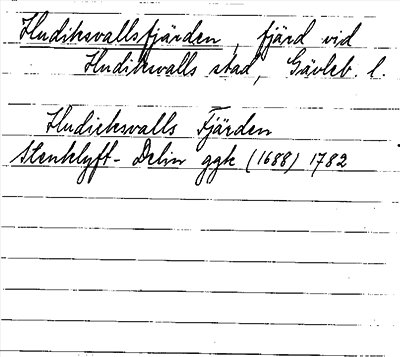 Hudiksvallsfjärden, fjärd vid
Hudiksvalls stad, Gävleb. l.
Hudicksvalls Fjärden
Stenklyft- Delin ggk (1688) 1782